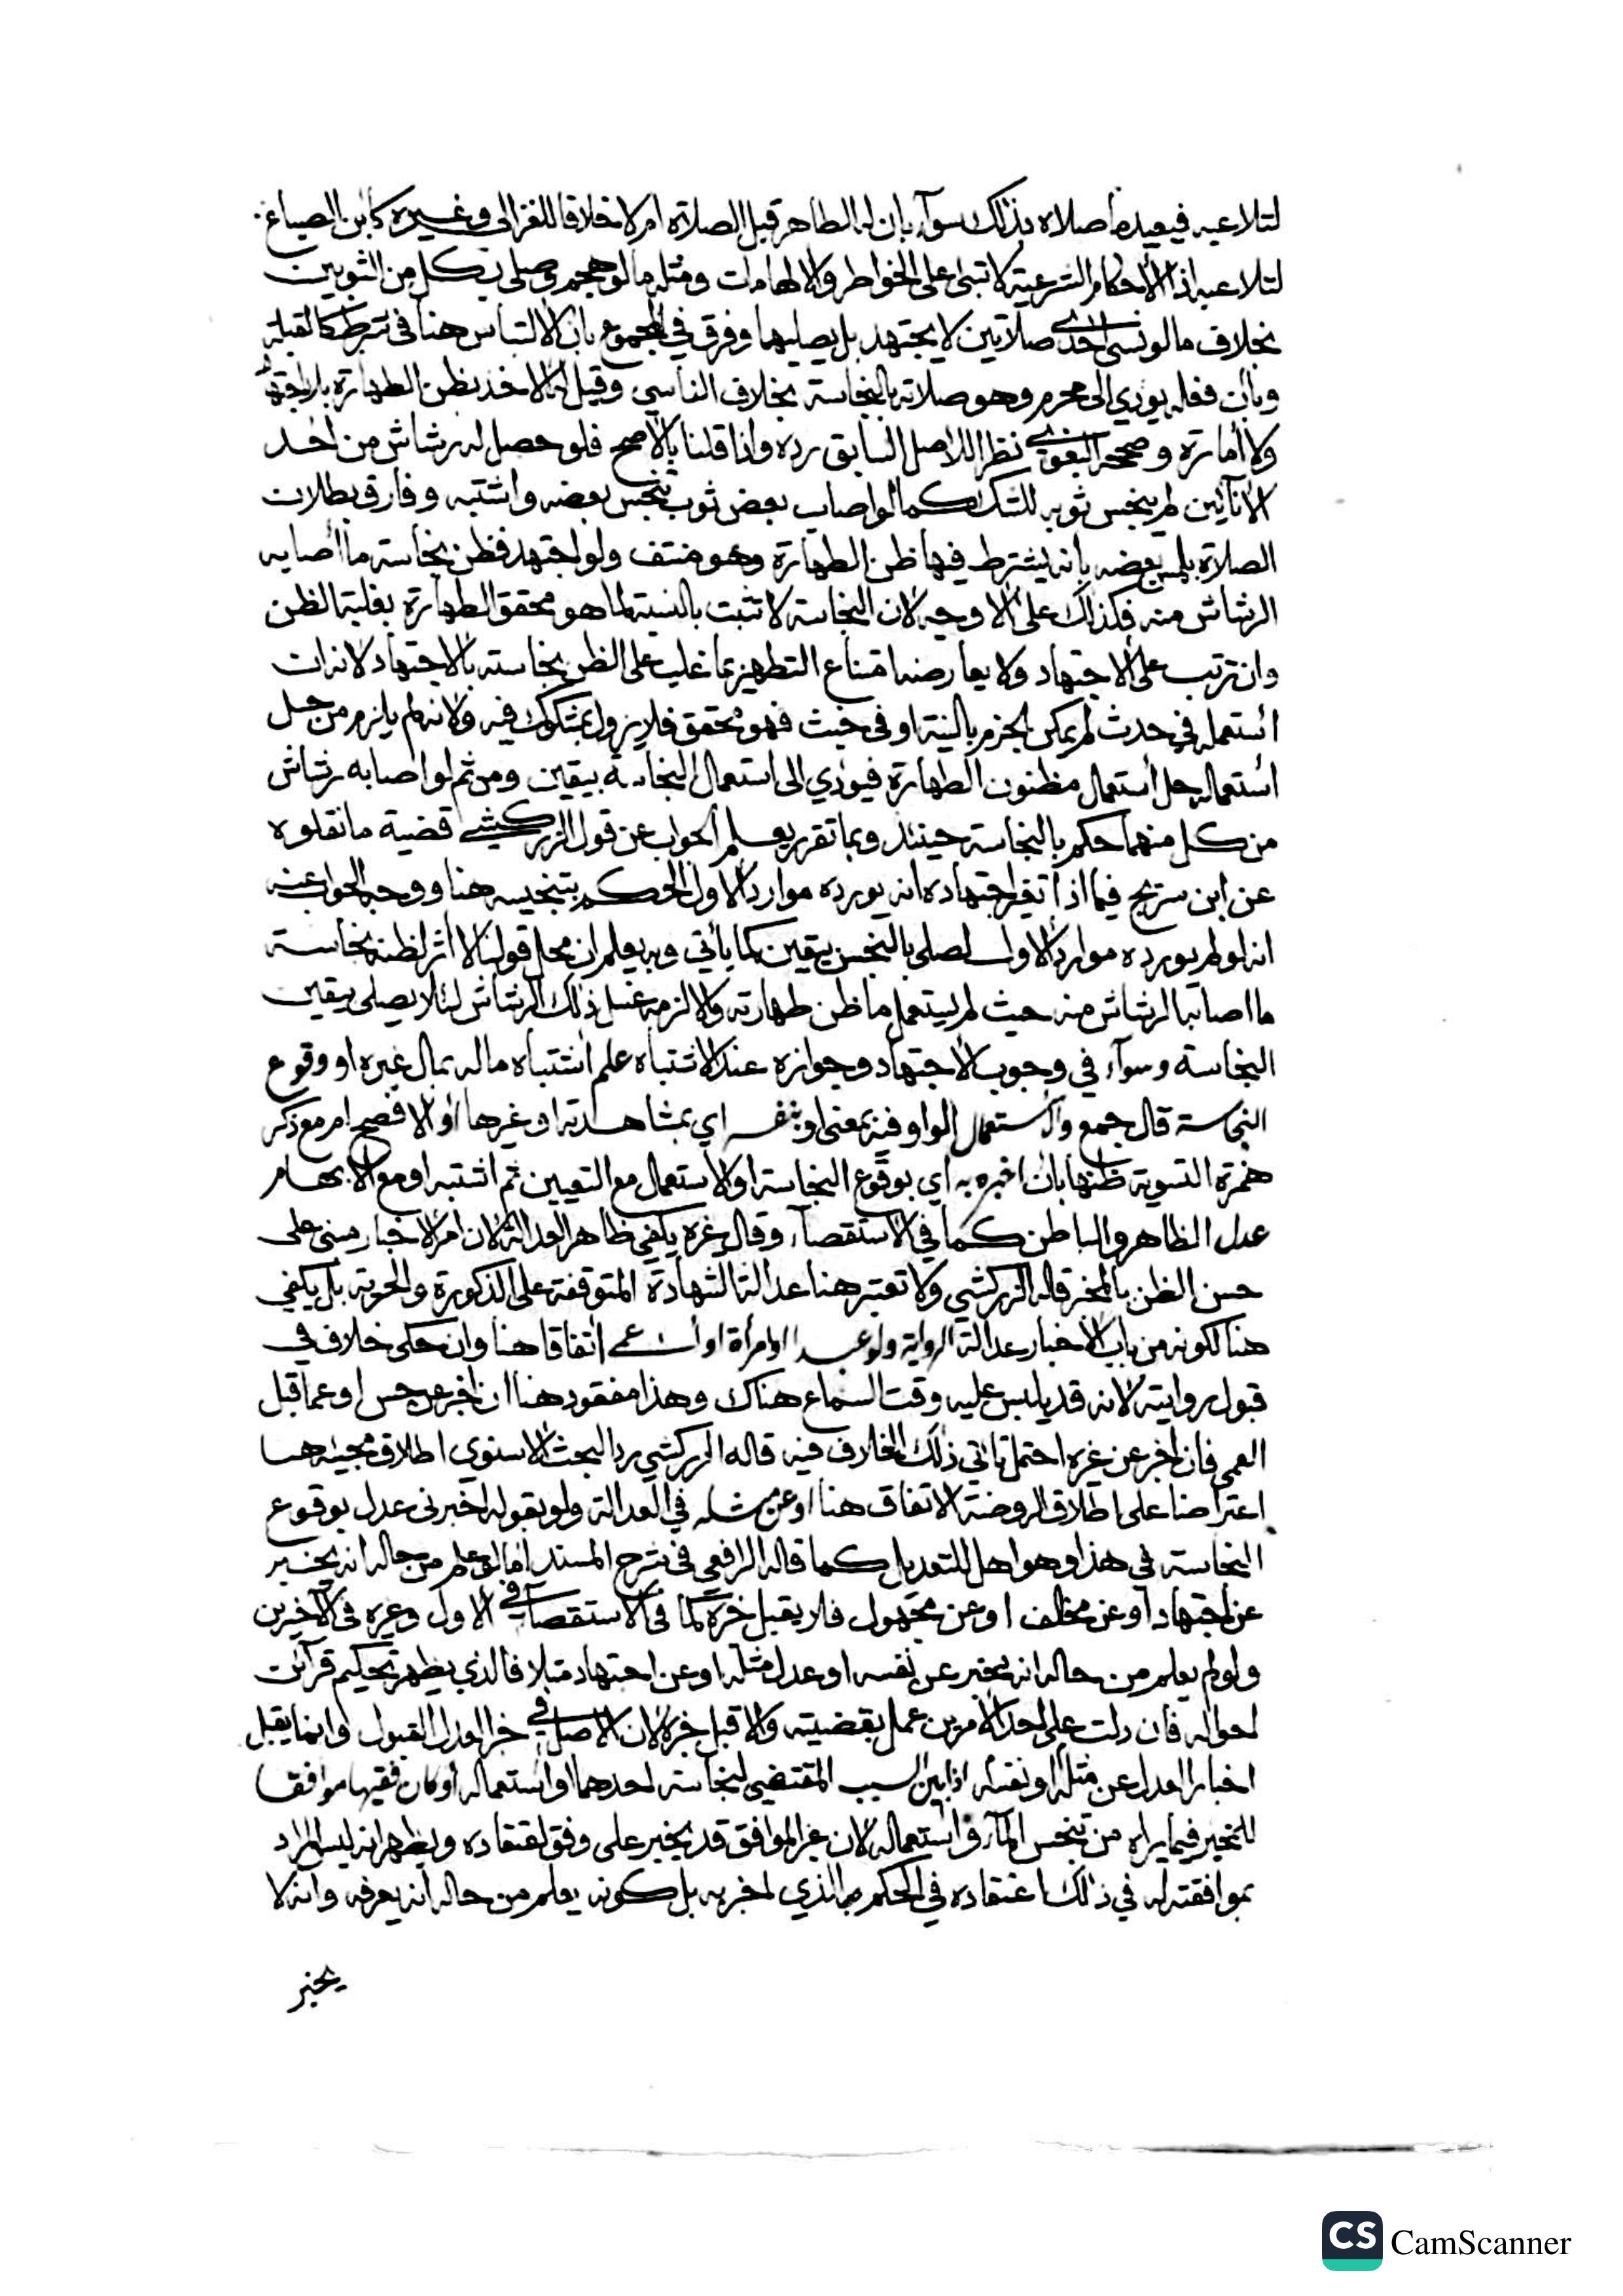 لتلاعبه فيعيد ما صلاه بذلك سوآء بان له الطاهر قبل الصلاة ام لا خلافا للغزالي وغيره كابن الصباغ
لتلاعبه اذ الاحكام الشرعية لا تبنى على الخواطر والالهامات ومثله ما لو هجم وصلى بكل من الثوبين
بخلاف ما لو نسي احدى صلاتين لا يجتهد بل يصليهما وفرق في المجموع بان الالتباس هنا في شرط كالقبلة
وبان فعله يودي الى محرم وهو صلاته بالنجاسة بخلاف الناسي وقيل له الاخذ بظن الطهارة بلا اجتهاد
ولا أمارة وصححه البغوي نظرا للاصل السابق رده واذا قلنا بالاصح فلو حصل له رشاش من احد
الانآئين لم ينجس ثوبه للشك كما لو اصاب بعض ثوب تنجس بعضه واشتبه وفارق بطلان
الصلاة بلمس بعضه بانه يشترط فيها ظن الطهارة وهو منتف ولو اجتهد فظن نجاسة ما أصابه
الرشاش منه فكذلك على الاوجه لان النجاسة لا تثبت بالنسبة لما هو محقق الطهارة بغلبة الظن
وان ترتب على الاجتهاد ولا يعارضه امتناع التطهير بما غلب على الظن نجاسته بالاجتهاد لانه ان
استعمله في حدث لم يمكن الجزم بالنية او في خبث فهو محقق فلا يزول بمشكوك فيه ولانه لم يلزم من حل
استعماله حل استعمال مظنون الطهارة فيؤدي الى استعمال النجاسة بيقين ومن ثم لو اصابه رشاش
من كل منهما حكم بالنجاسة حينئذ وبما تقرر يعلم الجواب عن قول الزركشي قضية ما نقلوه
عن ابن سريج فيما اذا تغير اجتهاده انه يورده موارد الاول الحكم بتنجيسه هنا ووجه الجواب عنه
انه لو لم يورده موارد الاول لصلى بالنجس بيقين كما يأتي وبه يعلم ان محل قولنا لا اثر لظنه نجاسة
ما اصابه الرشاش منه حيث لم يستعمل ما ظن طهارته والا لزمه غسل ذلك الرشاش لئلا يصلي بيقين
النجاسة وسوآء في وجوب الاجتهاد وجوازه عند الاشتباه علم اشتباه ماله بمال غيره او وقوع
النجاسة قال جمع واستعمال الواو فيه بمعنى او بنفسه اي بمشاهدته او غيرها أو الافصح ام مع ذكر
همزة التسوية ظنها بان اخبره به اي بوقوع النجاسة او الاستعمال مع التعيين ثم اشتبه او مع الابهام
عدل الظاهر والباطن كما في الاستقصآء وقال غيره يكفي ظاهر العدالة لان أمر الاخبار مبني على
حسن الظن بالمخبر قاله الزركشي ولا تعتبر هنا عدالة الشهادة المتوقفة على الذكورة والحرية بل يكفي
هنا لكونه من باب الاخبار عدالة الرواية ولو عبدا او امرأة او اعمى اتفاقا هنا وان حكى خلاف في
قبول روايته لانه قد يلبس عليه وقت السماع هناك وهذا مفقود هنا ان اخبر عن حس او عما قبل
العمى فان اخبر عن غيره احتمل تأتي ذلك الخلاف فيه قاله الزركشي ردا لبحث الاسنوي اطلاق مجيئه هنا
اعتراضا على اطلاق الروضة الاتفاق هنا او عن مثله في العدالة ولو بقوله اخبرني عدل بوقوع
النجاسة في هذا وهو اهل للتعديل كما قاله الرافعي في شرح المسند اما لو علم من حاله انه يخبر
عن اجتهاد او عن مخلف او عن مجهول فلا يقبل خبره كما في الاستقصآء في الاول وغيره في الاخيرين
ولو لم يعلم من حاله انه يخبر عن نفسه او عدل مثله او عن اجتهاد مثلا فالذي يظهر تحكيم قرآئن
احواله فان دلت على احد الأمرين عمل بقضيته والا قبل خبره لان الاصل في خبر العدل القبول وانما يقبل
اخبار العدل عن مثله او نفسه اذا بين السبب المقتضي لنجاسة احدهما او استعماله أو كان فقيها موافقا
للمخبر فيما يراه من تنجس المآء واستعماله لان غير الموافق قد يخبر على وفق اعتقاده ويظهر انه ليس المراد
بموافقته له في ذلك اعتقاده في الحكم الذي اخبر به بل كونه يعلم من حاله انه يعرفه وانه لا
يخبر
CS CamScanner